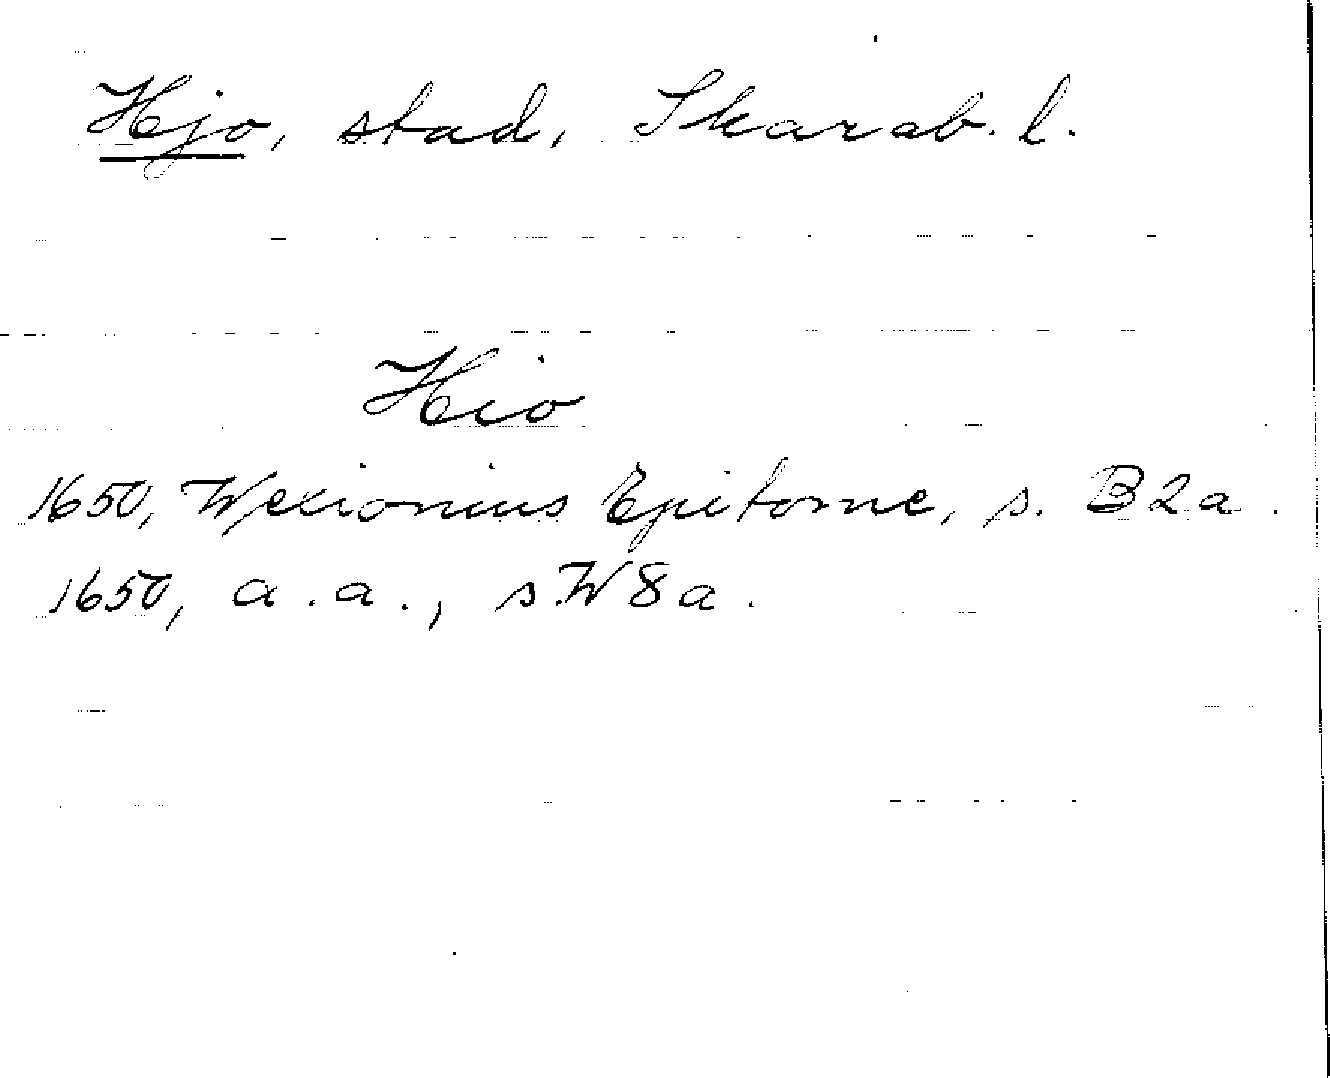 Hjo, stad, Skarab. l.
Hio
1650, Wexionius Epitome, s. B2a.
1650, a.a., s.W8a.